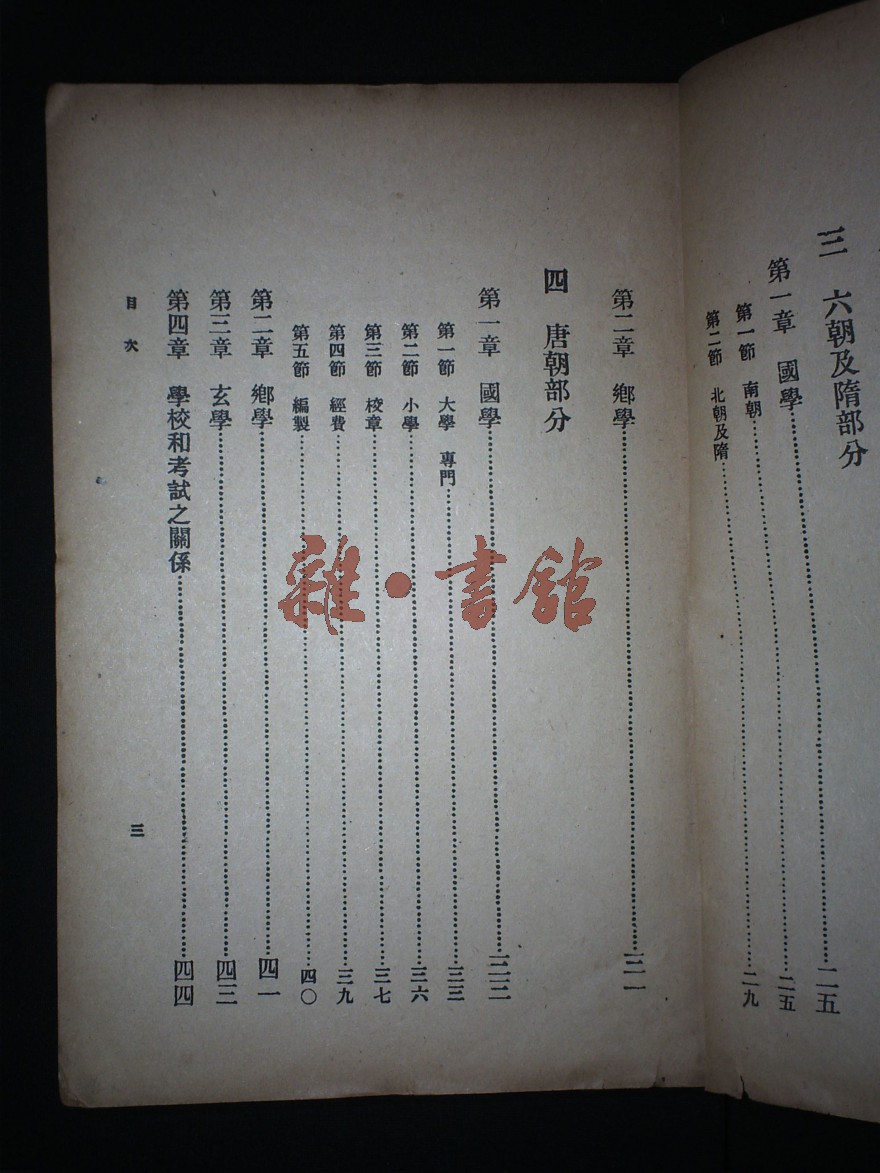 三 六朝及隋部分
第一章 國學……二五
第一節 南朝……二五
第二節 北朝及隋……二九
第二章 鄉學……三一
四 唐朝部分
第一章 國學……三三
第一節 大學 專門……三三
第二節 小學……三六
第三節 校章……三七
第四節 經費……三九
第五節 編製……四〇
第二章 鄉學……四一
第三章 玄學……四三
第四章 學校和考試之關係……四四
目次 三
雜·書館